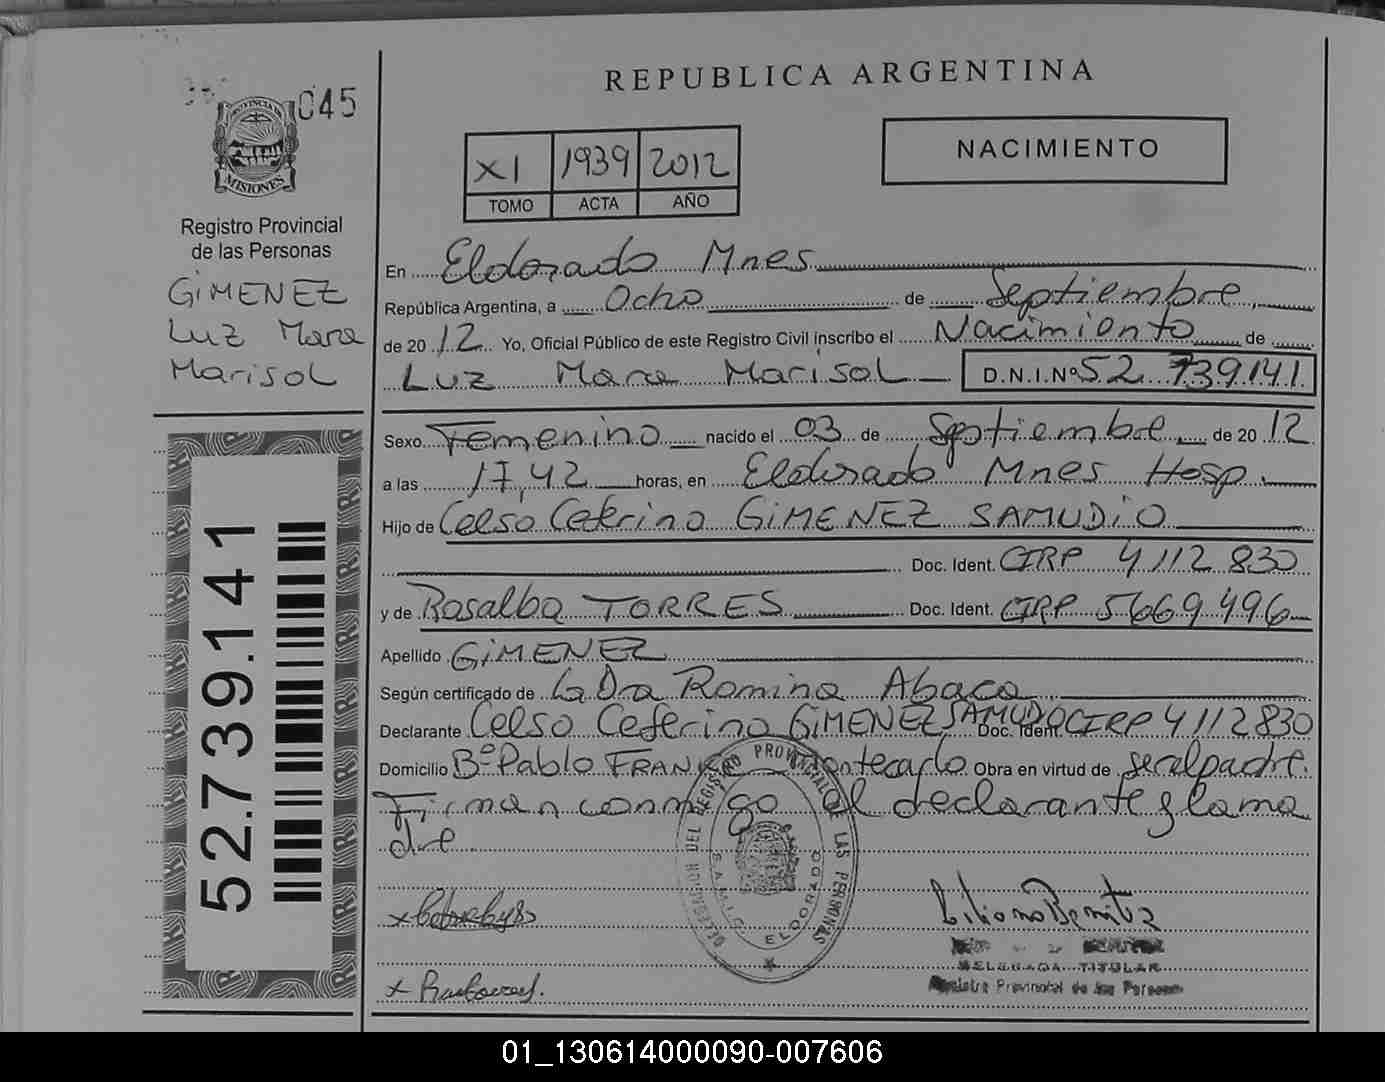 045
PROVINCIA DE
MISIONES
Registro Provincial
de las Personas
GiMENEZ
Luz Mara
Marisol
52.739.141
REPUBLICA ARGENTINA
XI 1939 2012
TOMO ACTA AÑO
NACIMIENTO
En Eldorado Mnes
República Argentina, a Ocho de Septiembre
de 20 12 Yo, Oficial Público de este Registro Civil inscribo el Nacimiento de
Luz Mara Marisol D.N.I.Nº 52.739.141
Sexo Femenino nacido el 03 de Septiembre de 20 12
a las 17,42 horas, en Eldorado Mnes Hosp.
Hijo de Celso Ceferino GiMENEZ SAMUDiO
Doc. Ident. CIRP 4112830
y de Rosalba TORRES Doc. Ident. CIRP 5669496
Apellido GiMENEZ
Según certificado de La Dra Romina Abaca
Declarante Celso Ceferino GiMENEZ SAMUDIO Doc. Ident CIRP 4112830
Domicilio Bº Pablo FRANKE Montecarlo Obra en virtud de ser el padre.
Firman conmigo el declarante y la ma
dre
DELEGACION DEL REGISTRO PROVINCIAL DE LAS PERSONAS
ELDORADO
DELEGADA TITULAR
Registro Provincial de las Personas
01_130614000090-007606